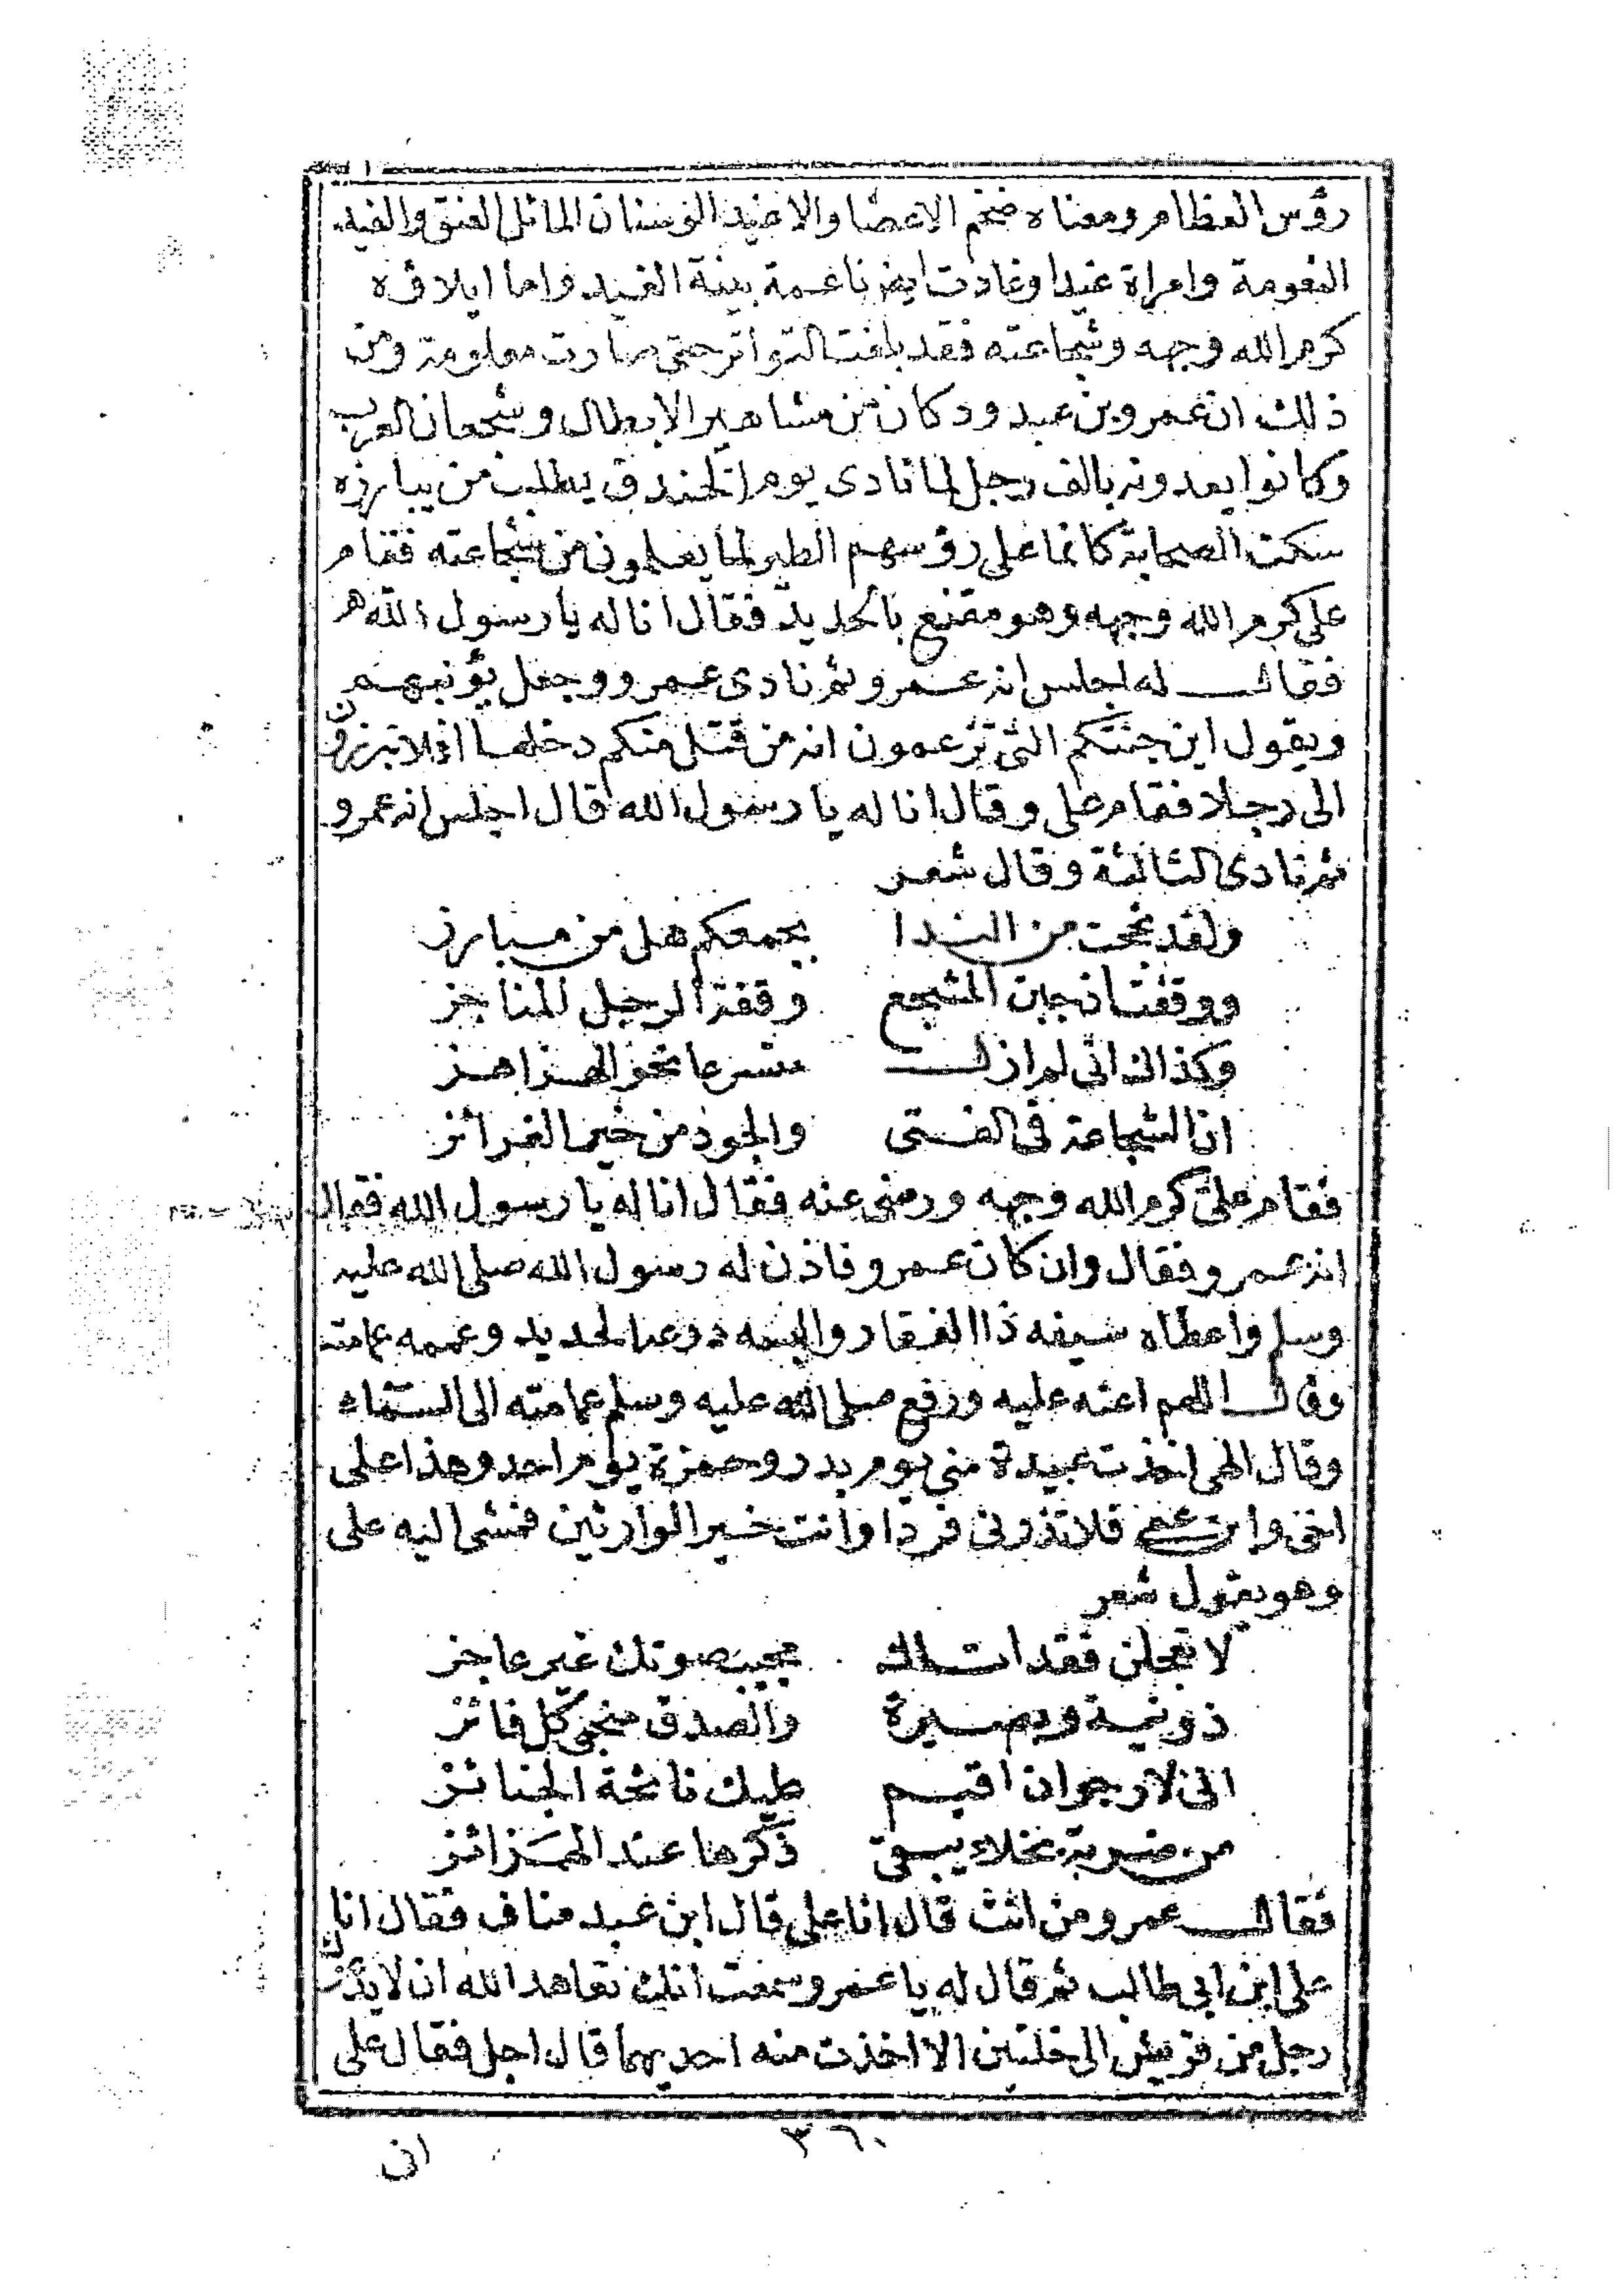 رؤس العظام ومعناه ضخم الاعضا والاغيد الوسنان المائل العنق والغيد
النعومة وامراة غيدا وغادت ايضا ناعمة بينة الغيد واما ابلاؤه
كرم الله وجهه وشجاعته فقد بلغت التواتر حتى صارت معلومة ومن
ذلك ان عمرو بن عبد ود كان من مشاهير الابطال وشجعان العرب
وكانوا يعدونه بالف رجل لما نادى يوم الخندق يطلب من يبارزه
سكت الصحابة كانما على رؤسهم الطير لما يعلمون من شجاعته فقام
على كرم الله وجهه وهو مقنع بالحديد فقال انا له يا رسول الله
فقال له اجلس انه عمرو ثم نادى عمرو وجعل يؤنبهم
ويقول اين جنتكم التى تزعمون انه من قتل منكم دخلها افلا تبرزون
الى رجلا فقام على وقال انا له يا رسول الله قال اجلس انه عمرو
ثم نادى الثالثة وقال شعر
ولقد بححت من الندا بجمعكم هل من مبارز
ووقفت اذ جبن المشجع وقفة الرجل المناجز
وكذاك انى لم ازلت متسرعا نحو الهزاهز
ان الشجاعة فى الفتى والجود من خير الغرائز
فقام على كرم الله وجهه ورضى عنه فقال انا له يا رسول الله فقال
انه عمرو فقال وان كان عمرو فاذن له رسول الله صلى الله عليه
وسلم واعطاه سيفه ذا الفقار والبسه درعه الحديد وعممه عمامته
وقال اللهم اعنه عليه ورفع صلى الله عليه وسلم عمامته الى السماء
وقال الهى اخذت عبيدة منى يوم بدر وحمزة يوم احد وهذا على
اخى وابن عمى فلا تذرونى فردا وانت خير الوارثين فمشى اليه على
وهو يقول شعر
لا تعجلن فقد اتاك مجيب صوتك غير عاجز
ذو نية وبصيرة والصدق منجى كل فائز
انى لارجو ان اقيم عليك نائحة الجنائز
من ضربة نجلاء يبقى ذكرها عند الهزائز
فقال عمرو ومن انت قال انا على قال ابن عبد مناف فقال انا
على ابن ابى طالب ثم قال له يا عمرو سمعت انك تعاهد الله ان لا يدعوك
رجل من قريش الى خلتين الا اخذت منه احديهما قال اجل فقال على
٣٦٠
ان